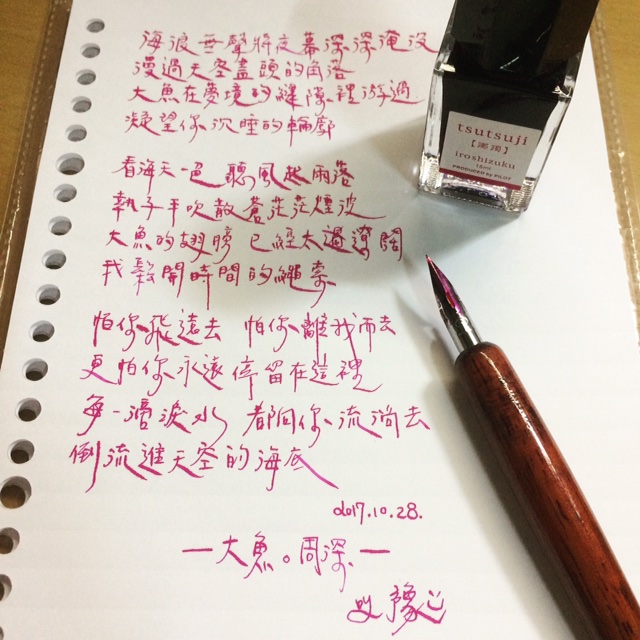 海浪無聲將夜幕深深淹沒
漫過天空盡頭的角落
大魚在夢境的縫隙裡游過
凝望你沉睡的輪廓
看海天一色 聽風起雨落
執子手吹散蒼茫茫煙波
大魚的翅膀 已經太遼闊
我鬆開時間的繩索
怕你飛遠去 怕你離我而去
更怕你永遠停留在這裡
每一滴淚水 都向你流淌去
倒流進天空的海底
2017.10.28.
—大魚。周深—
by 豫
tsutsuji
【躑躅】
iroshizuku
15ml
PRODUCED by PILOT